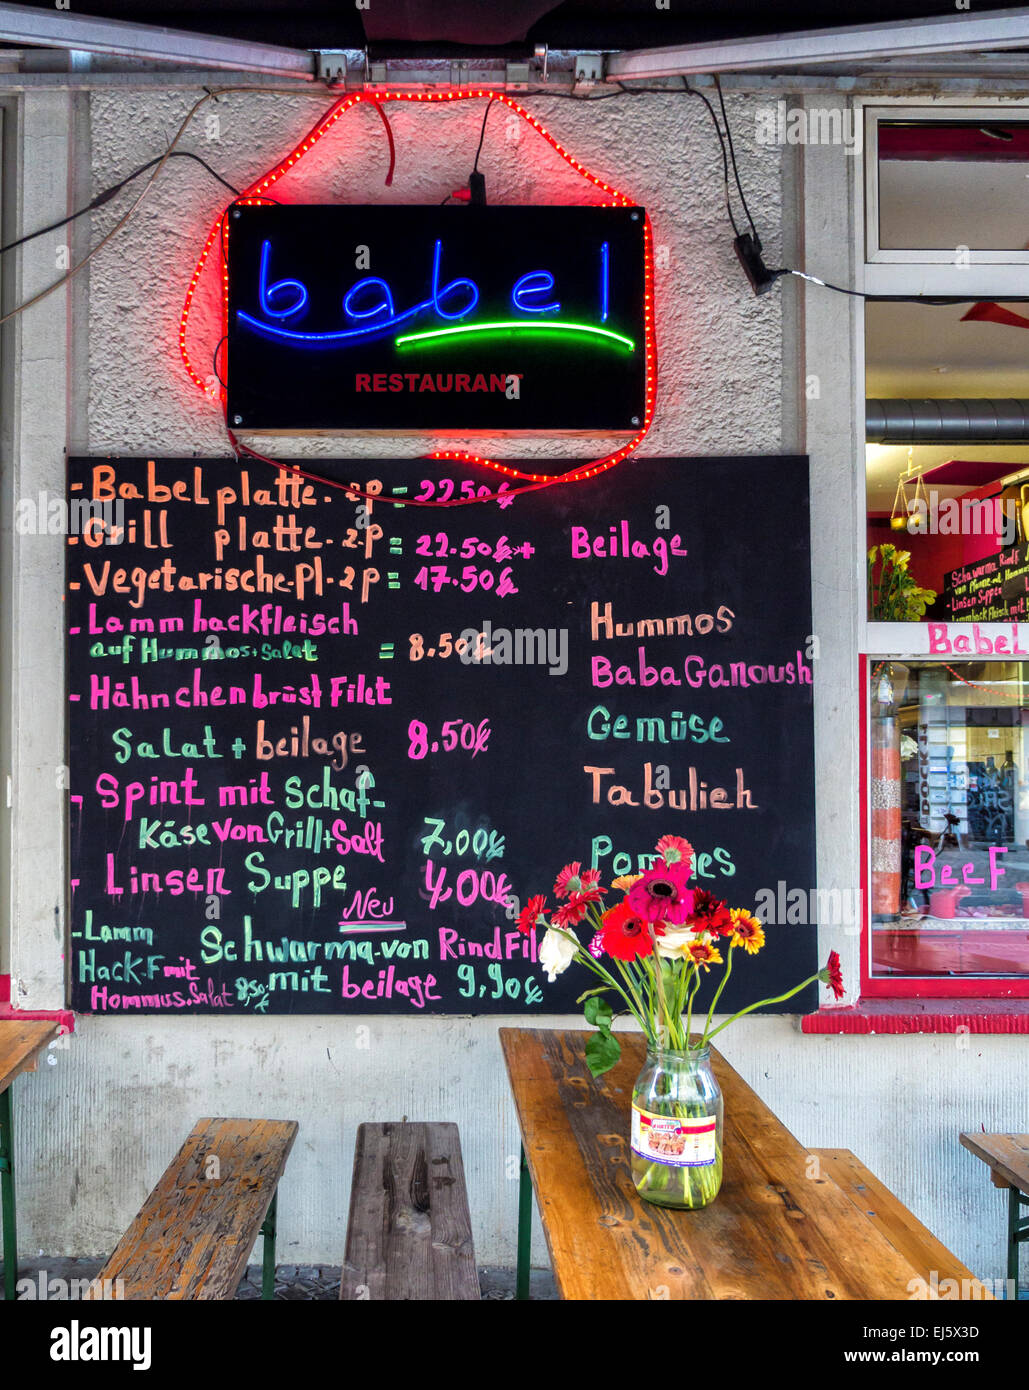 babel
RESTAURANT
- Babel platte - 2 P = 22.50 €
- Grill platte - 2.P = 22.50 € + Beilage
- Vegetarische-Pl-2 P = 17.50 €
- Lamm hackfleisch
auf Hummos + Salat = 8.50 €
- Hähnchenbrüst Filet
Salat + beilage 8.50 €
- Spint mit Schaf-
Käse von Grill + Salt 7,00 €
- Linsen Suppe 4,00 €
Neu
- Lamm
Hack-F mit
Hommus.Salat 8,50 €
Schwarma-von Rind Fil
mit beilage 9,90 €
Hummos
Baba Ganoush
Gemüse
Tabulieh
Schawarma Rind F
von Pfanne
- Linsen Suppe
Lammhackfleisch mit
Babel
BeeF
alamy
alamy
Image ID: EJ5X3D
www.alamy.com